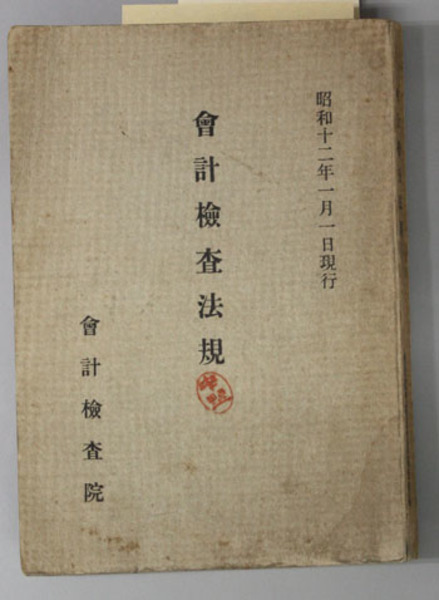 昭和十二年一月一日現行
會計檢査法規
會計檢査院